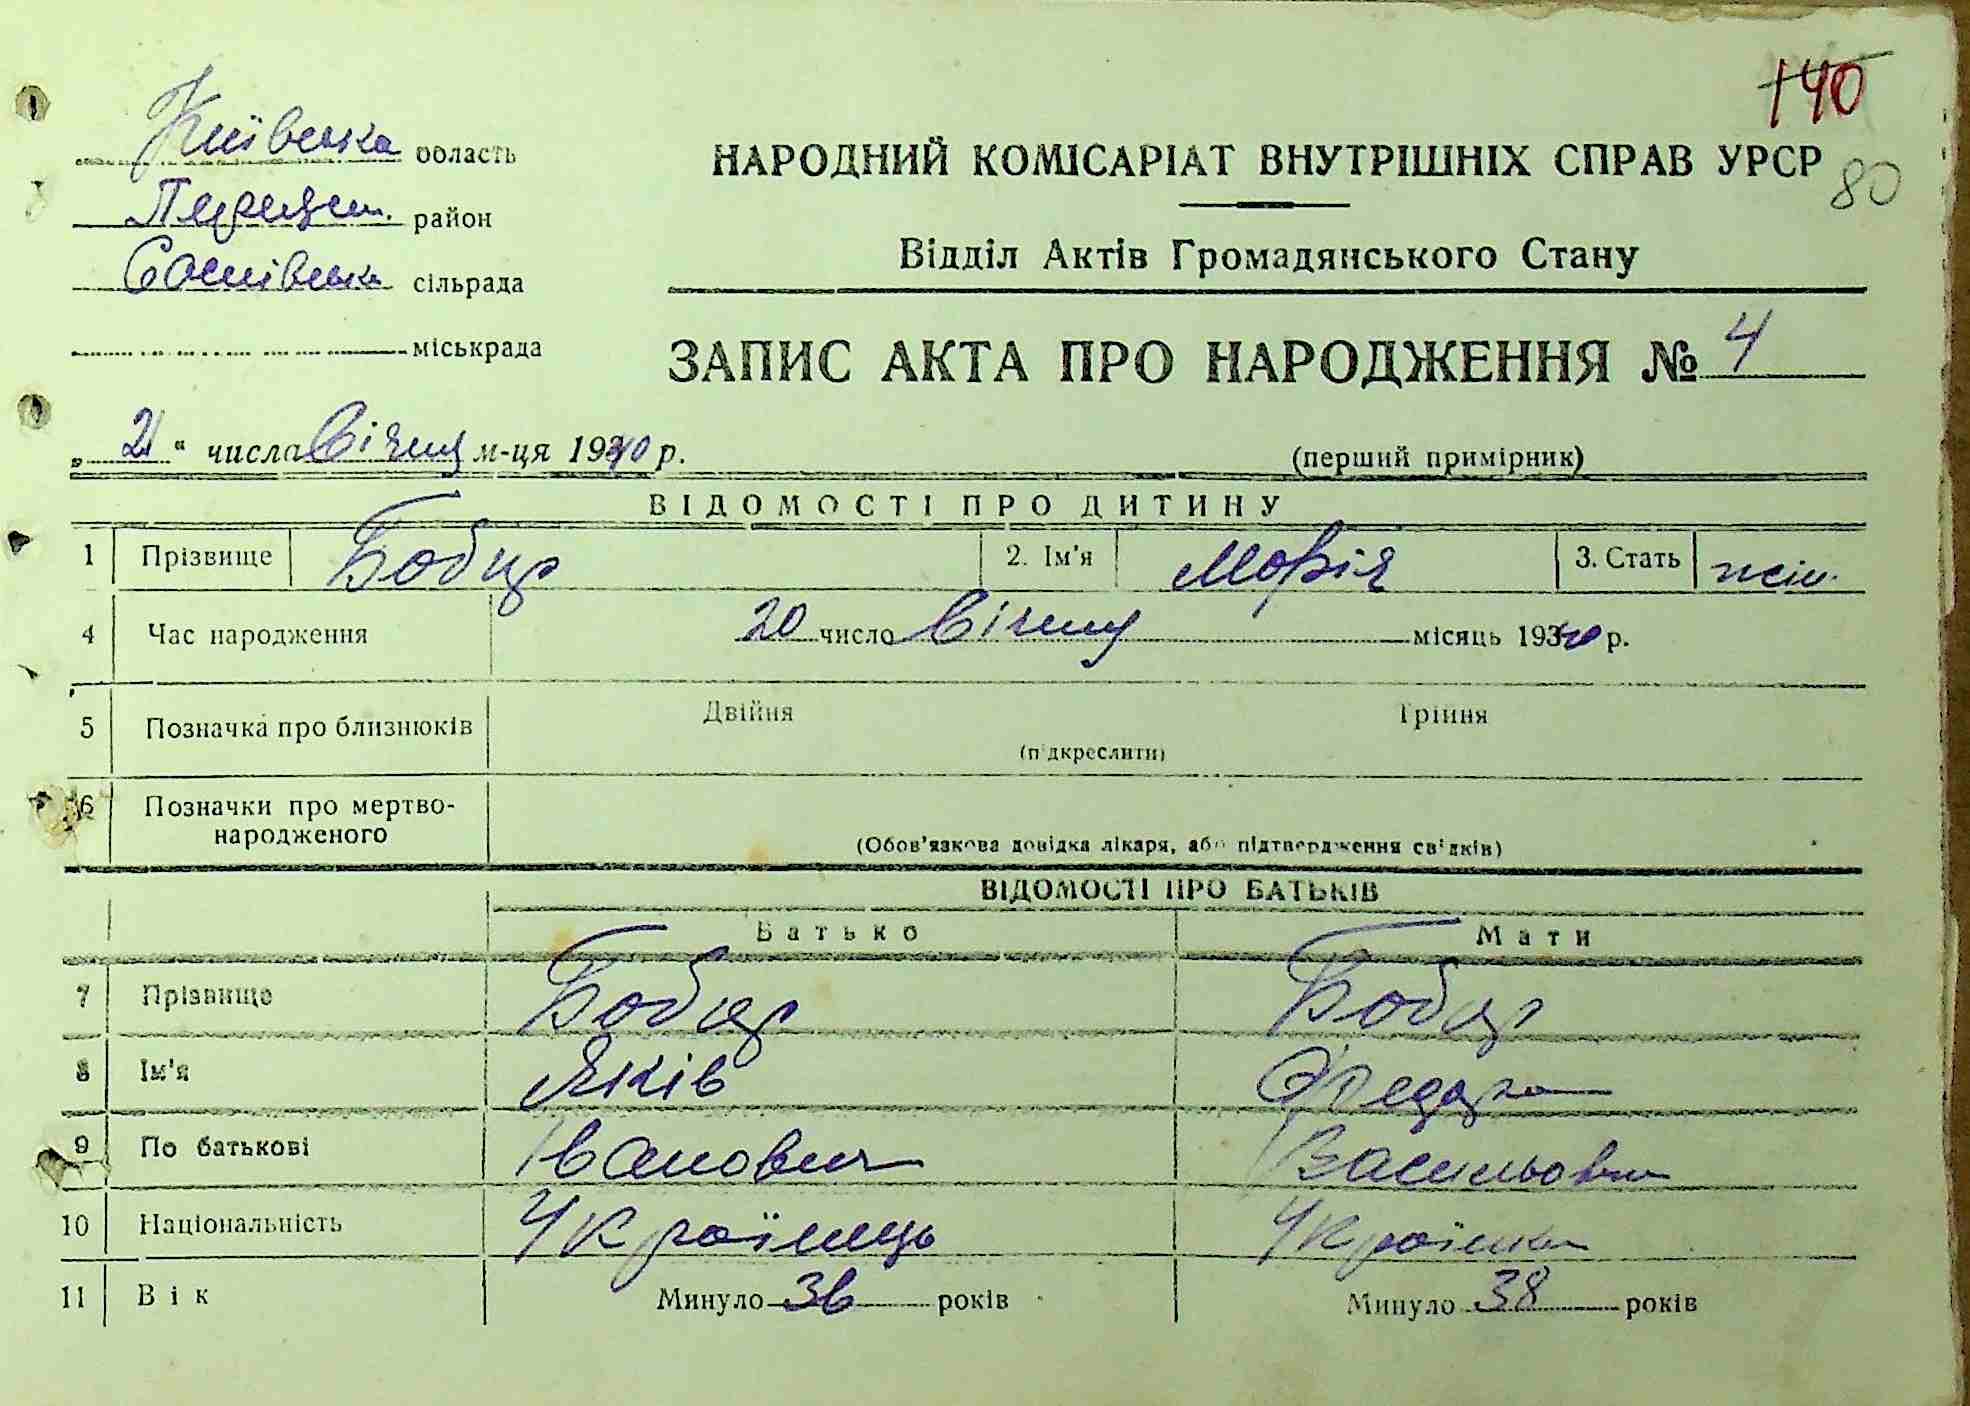 140
80
Київська область
район
сільрада
міськрада
НАРОДНИЙ КОМІСАРІАТ ВНУТРІШНІХ СПРАВ УРСР
Відділ Актів Громадянського Стану
ЗАПИС АКТА ПРО НАРОДЖЕННЯ № 4
„ 21 “ числа Січня м-ця 1940 р.
(перший примірник)
ВІДОМОСТІ ПРО ДИТИНУ
1 Прізвище Бобир 2. Ім'я Марія 3. Стать жін.
4 Час народження 20 число Січня місяць 1940 р.
5 Позначка про близнюків Двійня Трійня
(підкреслити)
6 Позначки про мертво-
народженого
(Обов'язкова довідка лікаря, або підтвердження свідків)
ВІДОМОСТІ ПРО БАТЬКІВ
Батько Мати
7 Прізвище Бобир Бобир
8 Ім'я Яків
9 По батькові Іванович Василівна
10 Національність Українець Українка
11 Вік Минуло 36 років Минуло 38 років